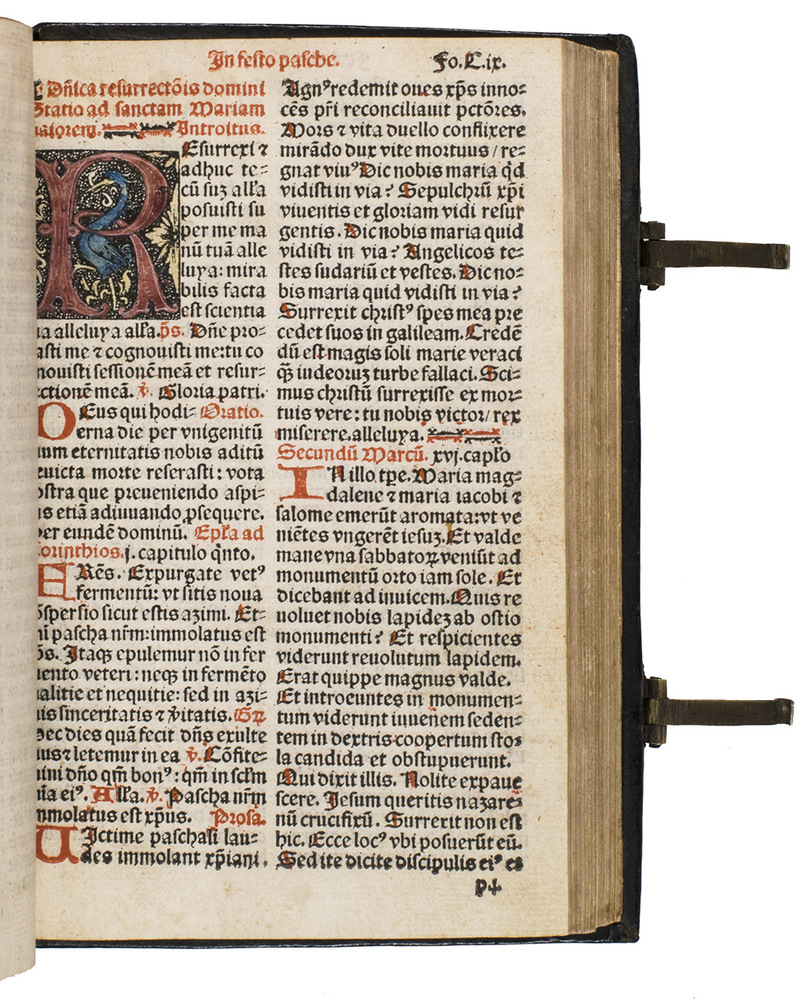 In festo pasche. Fo. C.ix.
Dñica resurrectõis domini
Statio ad sanctam Mariam
maiorem. Introitus.
REsurrexi ⁊
adhuc te-
cũ suʒ alła
posuisti su
per me ma
nũ tuã alle
luya: mira
bilis facta
est scientia
ua alleluya alła. p̃s. Dñe pro-
asti me ⁊ cognouisti me: tu co
nouisti sessionẽ meã et resur-
ectionẽ meã. ℣. Gloria patri.
DEus qui hodi- Oratio.
erna die per vnigenitũ
uum eternitatis nobis aditũ
euicta morte reserasti: vota
ostra que preueniendo aspi-
as etiã adiuuando ꝓsequere.
per eundẽ dominũ. Epła ad
Corinthios. j. capitulo q̃nto.
FRẽs. Expurgate vetꝰ
fermentũ: vt sitis noua
õspersio sicut estis azimi. Et-
nĩ pascha nr̃m: immolatus est
xp̃s. Itaqꝫ epulemur nõ in fer
mento veteri: neqꝫ in fermẽto
malitie et nequitie: sed in azi-
mis sinceritatis ⁊ v̓itatis. Gr̃
Hec dies quã fecit dñs exulte
musꝫ letemur in ea ℣. Cõfite-
mini dño qm̃ bonꝰ: qm̃ in secłm
mĩa eiꝰ. Alła. ℣. Pascha nr̃m
mmolatus est xp̃us. Prosa.
UIctime paschali lau-
des immolant xp̃iani.
Agnꝰ redemit oues xp̃s inno-
cẽs pr̃i reconciliauit pctõres.
Mors ⁊ vita duello conflixere
mirãdo dux vite mortuus / re-
gnat viuꝰ Dic nobis maria q̃d
vidisti in via? Sepulchrũ xp̃i
viuentis et gloriam vidi resur
gentis. Dic nobis maria quid
vidisti in via? Angelicos te-
stes sudariũ et vestes. Dic no-
bis maria quid vidisti in via?
Surrexit christꝰ spes mea pre
cedet suos in galileam. Credẽ
dũ est magis soli marie veraci
q̃ʒ iudeoruʒ turbe fallaci. Sci-
mus christũ surrexisse ex mor-
tuis vere: tu nobis victor / rex
miserere. alleluya.
Secundũ Marcũ. xvj. capło
IN illo tp̃e. Maria mag-
dalene ⁊ maria iacobi ⁊
salome emerũt aromata: vt ve
niẽtes vngerẽt iesuʒ. Et valde
mane vna sabbatoꝝ veniũt ad
monumentũ orto iam sole. Et
dicebant ad inuicem. Quis re
uoluet nobis lapideʒ ab ostio
monumenti? Et respicientes
viderunt reuolutum lapidem.
Erat quippe magnus valde.
Et introeuntes in monumen-
tum viderunt iuuenem seden-
tem in dextris coopertum sto-
la candida et obstupuerunt.
Qui dixit illis. Nolite expaue
scere. Jesum queritis nazare-
nũ crucifixũ. Surrexit non est
hic. Ecce locꝰ vbi posuerũt eũ.
Sed ite dicite discipulis eiꝰ et